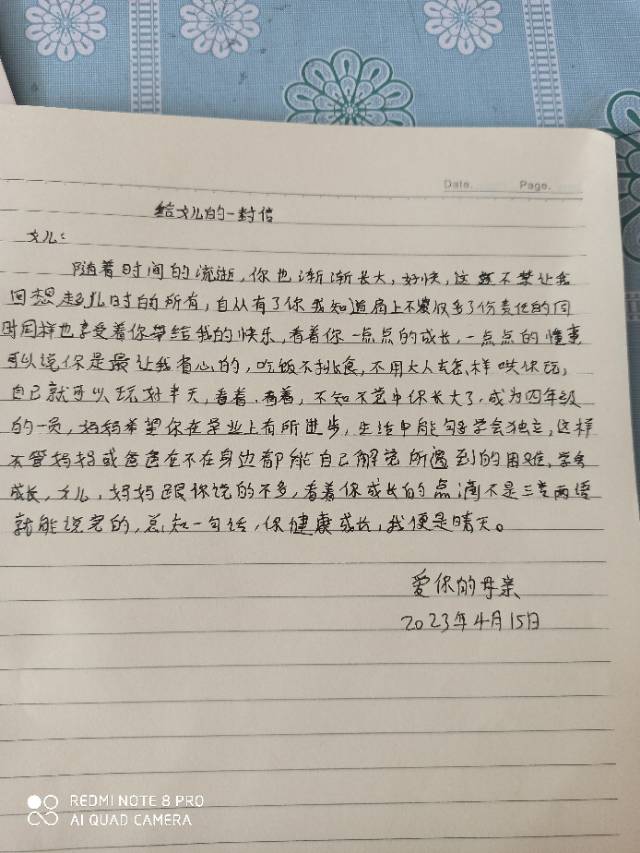 Date.
Page.
给女儿的一封信
女儿：
随着时间的流逝，你也渐渐长大，好快，这就不禁让我
回想起儿时的所有，自从有了你我知道肩上不仅多了份责任的同
时同样也享受着你带给我的快乐，看着你一点点的成长，一点点的懂事
可以说你是最让我省心的，吃饭不挑食，不用大人去怎样哄你玩，
自己就可以玩好半天，看着，看着，不知不觉中你长大了，成为四年级
的一员，妈妈希望你在学业上有所进步，生活中能够学会独立，这样
不管妈妈或爸爸在不在身边都能自己解觉所遇到的困难，学会
成长，女儿，妈妈跟你说的不多，看着你成长的点滴不是三言两语
就能说完的，总知一句话，你健康成长，我便是晴天。
爱你的母亲
2023年4月15日
REDMI NOTE 8 PRO
AI QUAD CAMERA